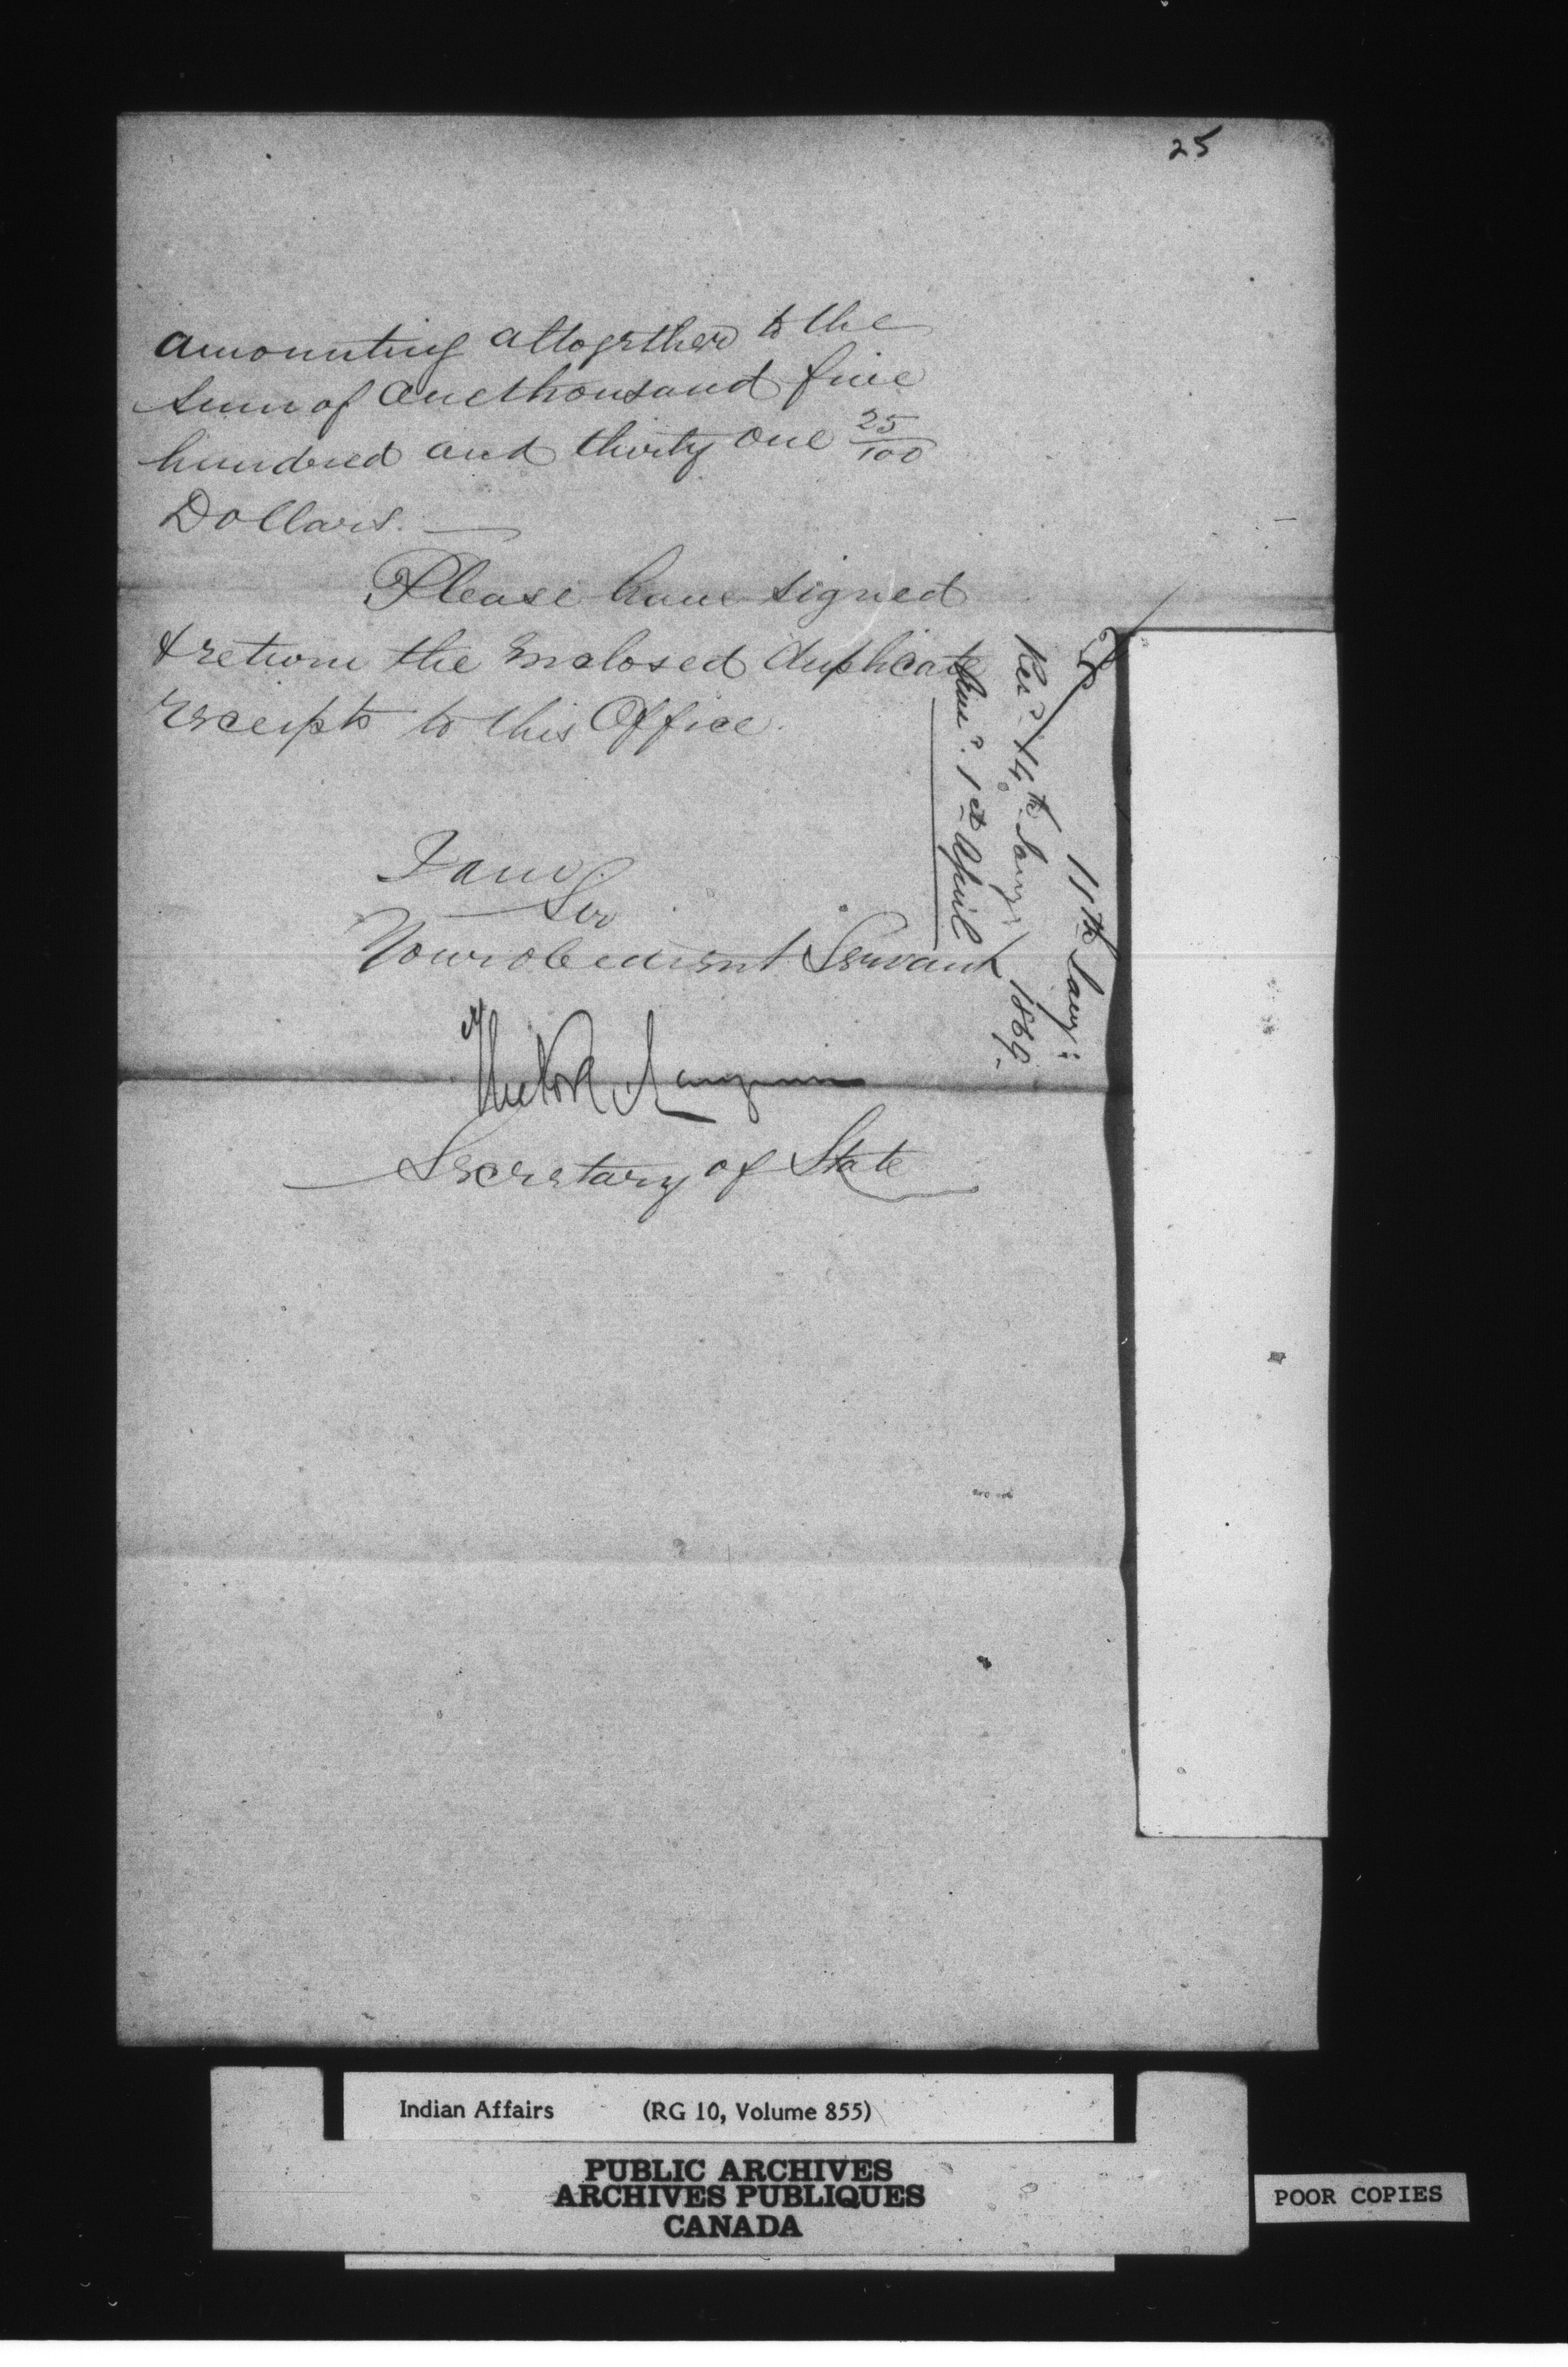 25
amounting altogether to the
sum of one thousand five
hundred and thirty one 25/100
Dollars. —
Please have signed
& return the enclosed duplicate
receipts to this Office.
I am
Sir
Your obedient Servant
Hector L. Langevin
Secretary of State
11th Jany:
Recd 14th Jany: 1869.
Ansd. 1st April
Indian Affairs (RG 10, Volume 855)
PUBLIC ARCHIVES
ARCHIVES PUBLIQUES
CANADA
POOR COPIES